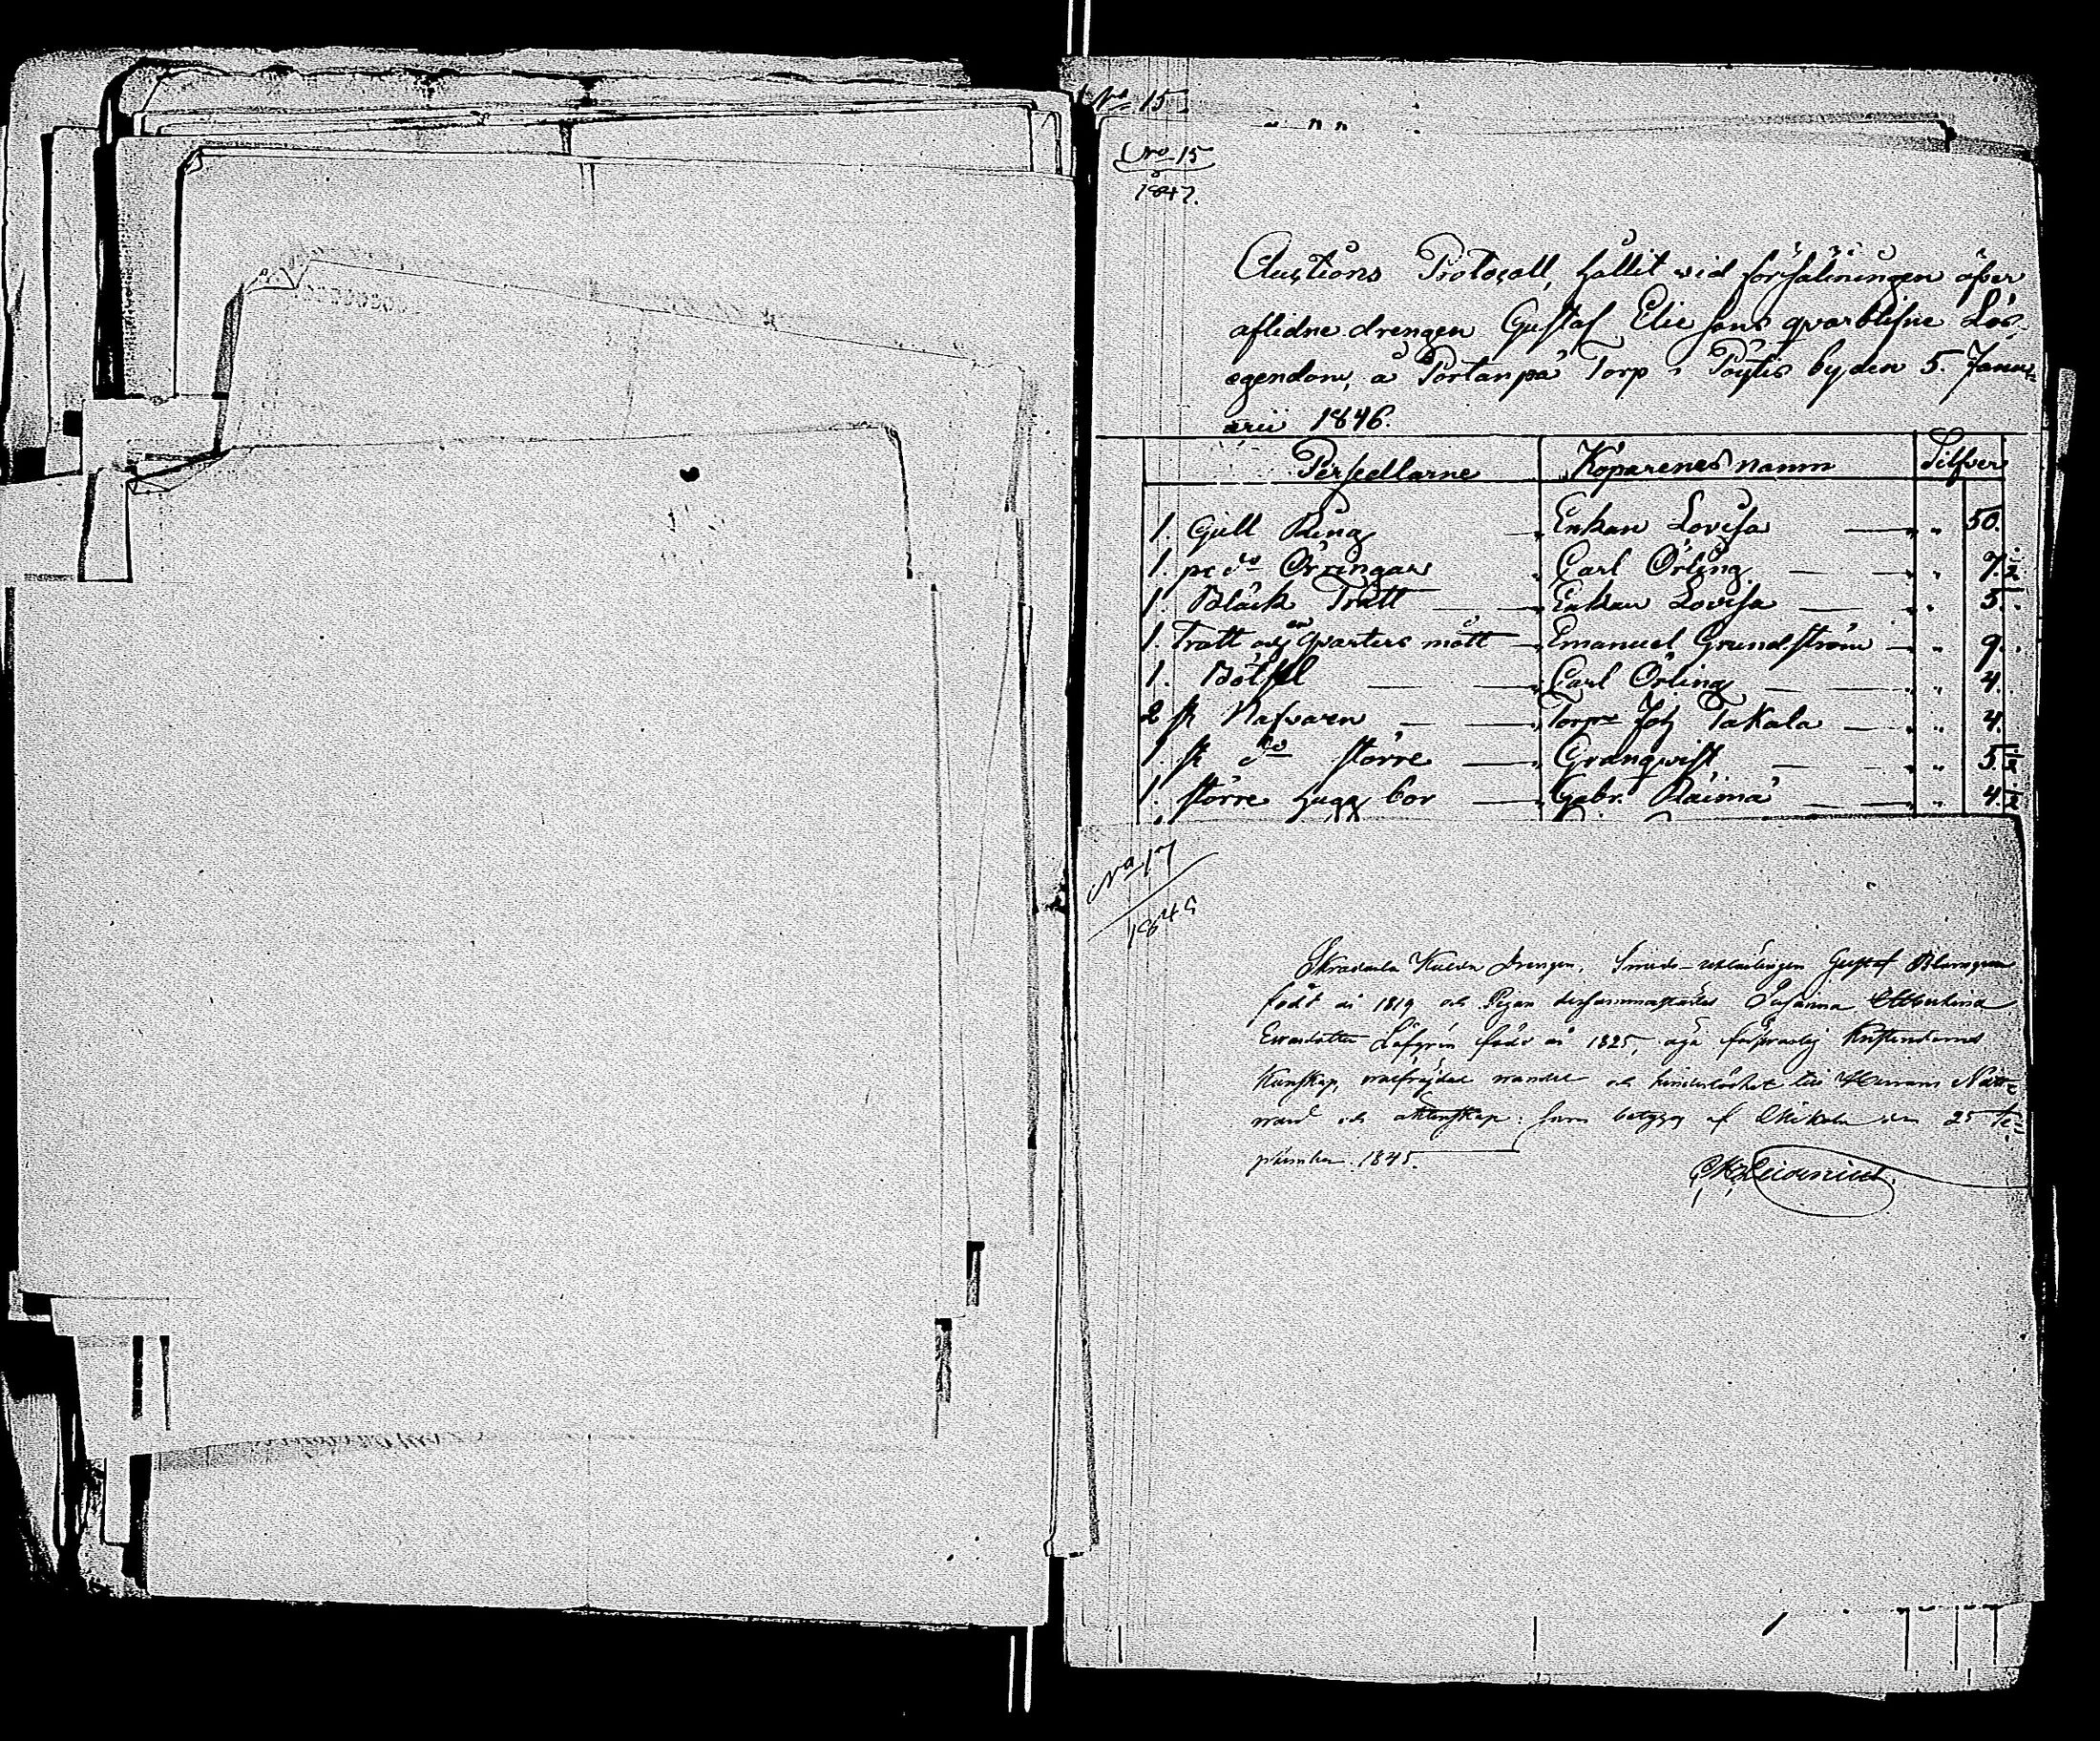 No 15
Nro 15
1847.
Auctions Protocoll, hållit wid försäliningen öfver
aflidne drengen Gustaf Elie sons qvarblifne Lös
egendom, å Portanpä Torp i Pöytis by, den 5. Janu-
arii 1846.
Persedlarne Köparenes namn Silfver
1. Gull Ring Enkan Lovisa " 50.
1. pr do Örringar Carl Örling " 7. ½
1. Bläck Tratt Enkan Lovisa " 5.
1. Tratt och en qvarters mått Emanuel Grundström " 9.
1. Bötsel Carl Örling " 4.
2 st Nafvaren Torpre Joh Takala " 4.
1. st do större Granqvist " 5 ½
1. större hugg bor Gabr. Räimä " 4. ½
No 17
1845
Drengen, Smeds-
född år 1819 och Pigan dersammastädes Susanna Albertina
Löfgrén född år 1825, äga försvarlig Kristendoms
Kunskap, wälfrejdad wandel och hinderlöshet till Herrans Natt-
ward och äktenskap: som betygas af den 25 Se-
ptember 1845.